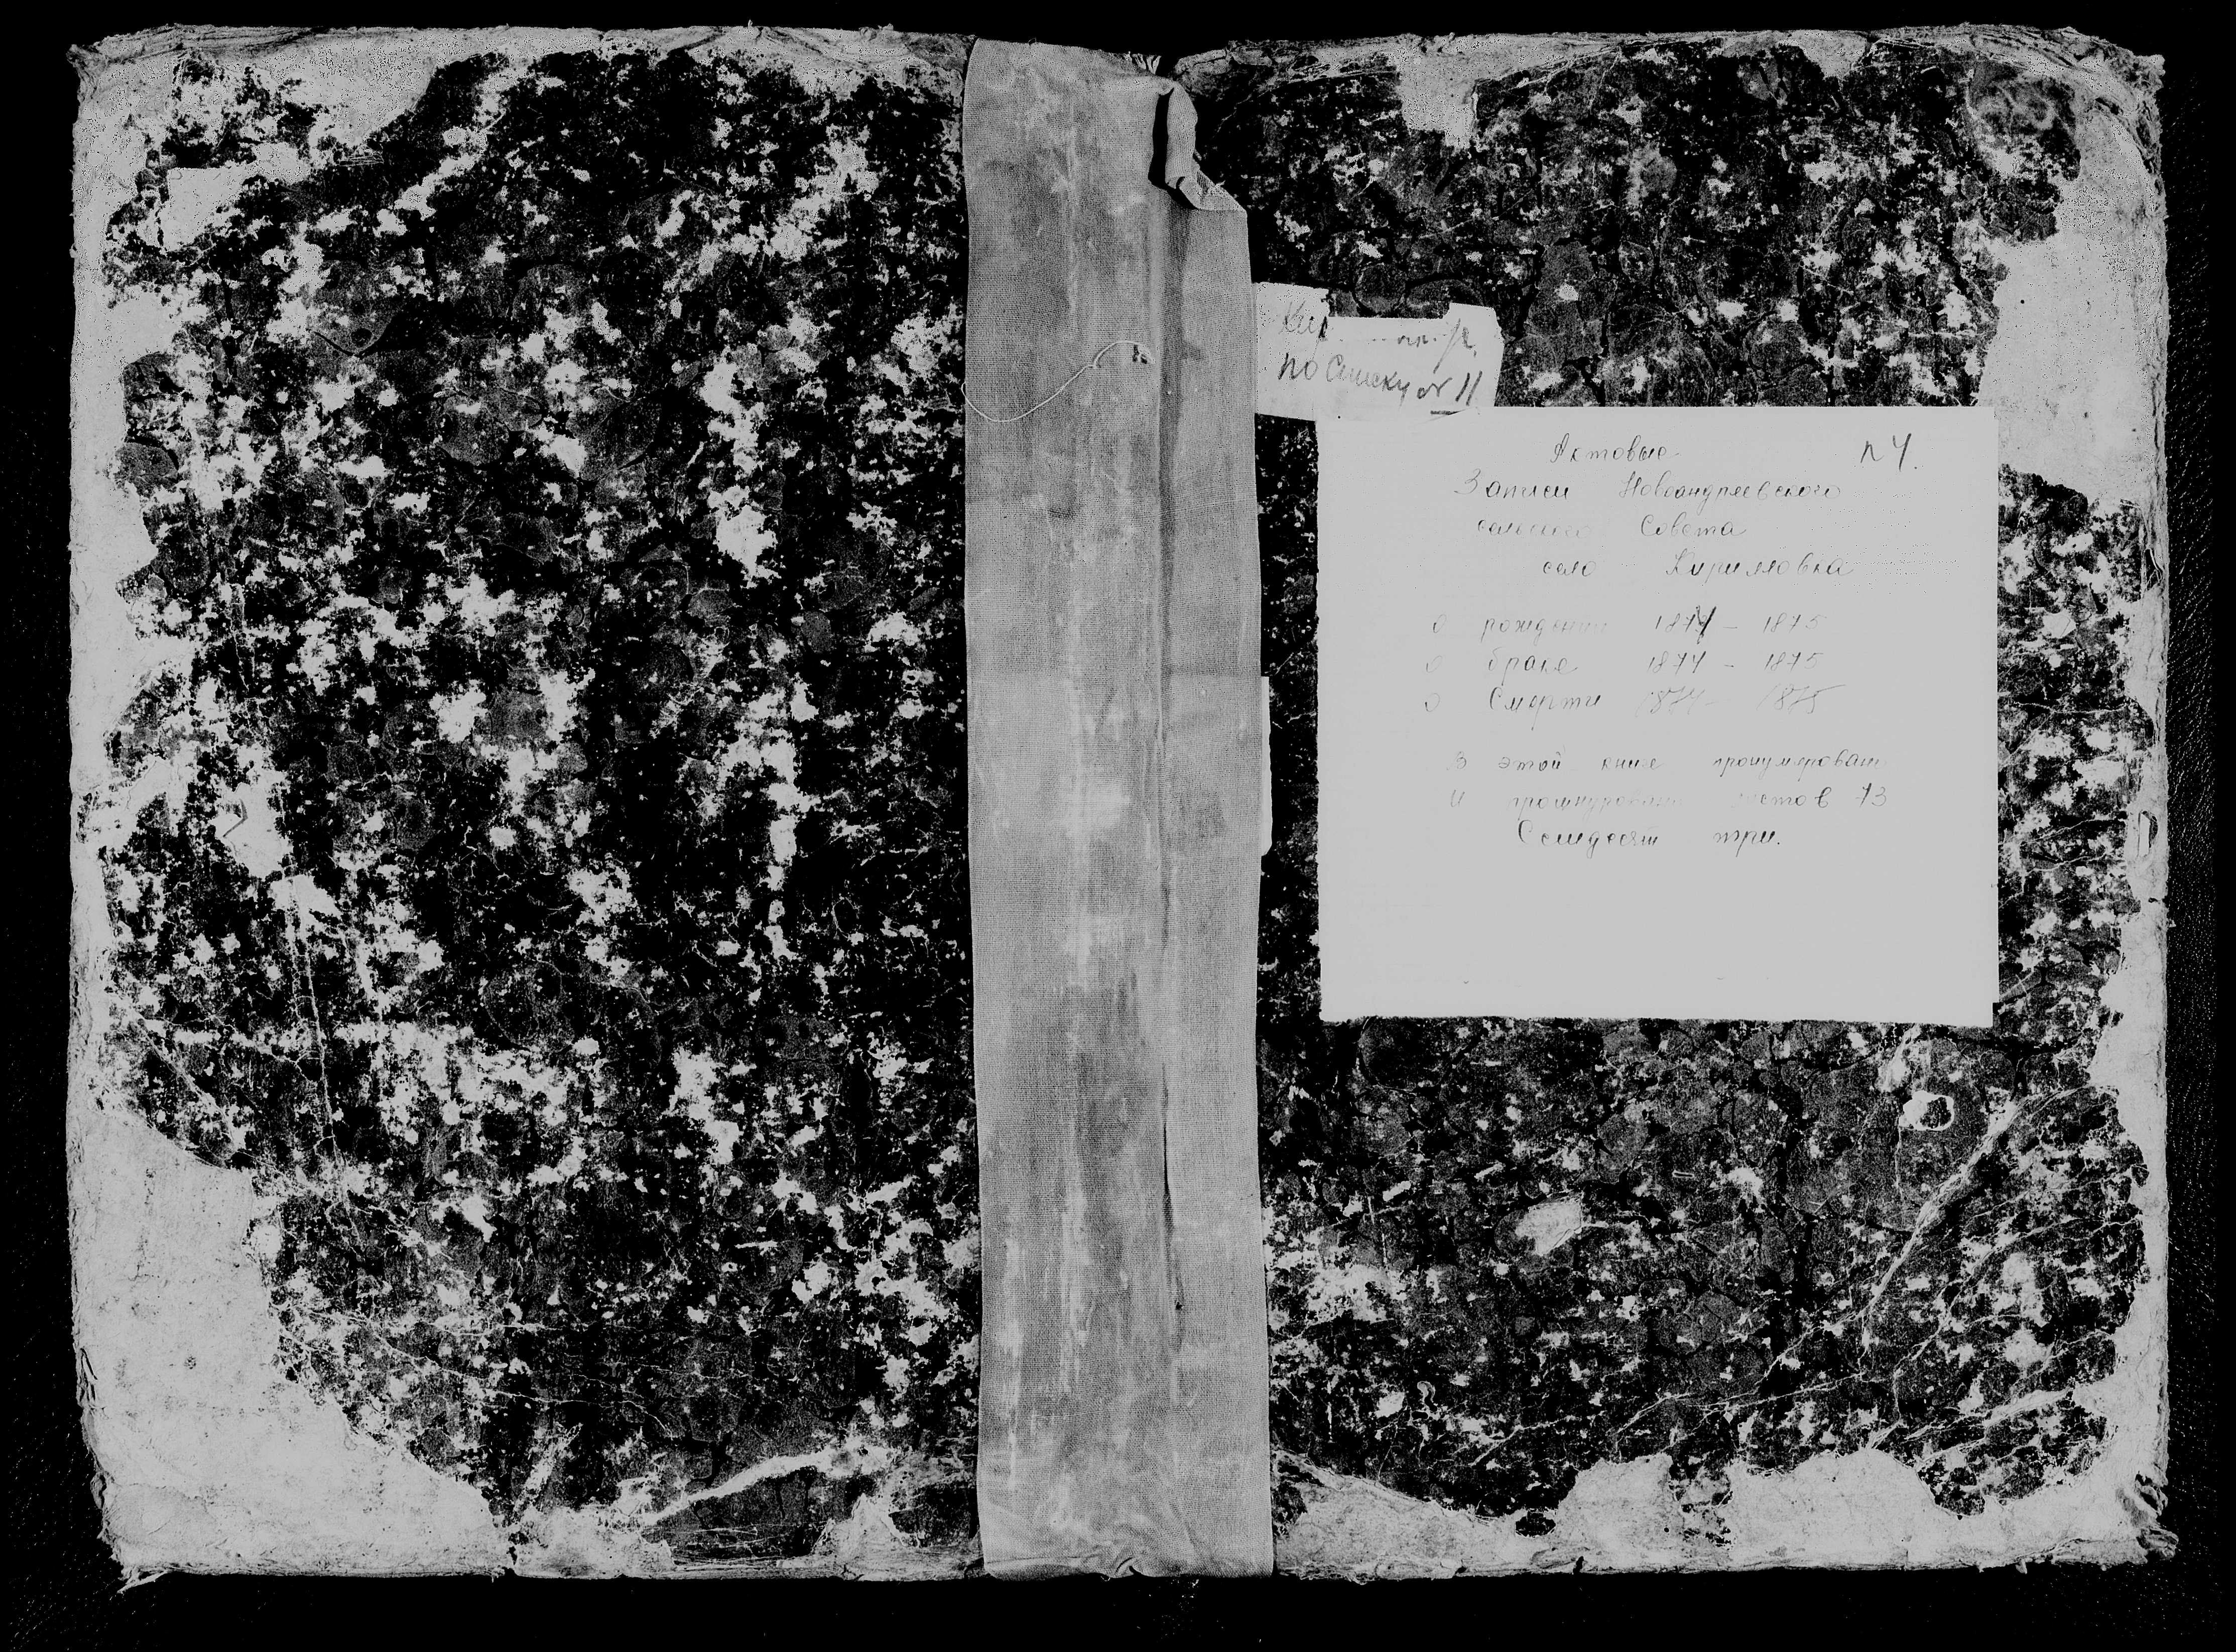 по Списку № 11
Актовые n 4.
Записи Новоандреевского
сельского Совета
село Кирилловка
о рождении 1874 - 1875
о браке 1874 - 1875
о Смерти 1874 - 1875
В этой книге пронумерован
и прошнурован листов 73
Семьдесят три.